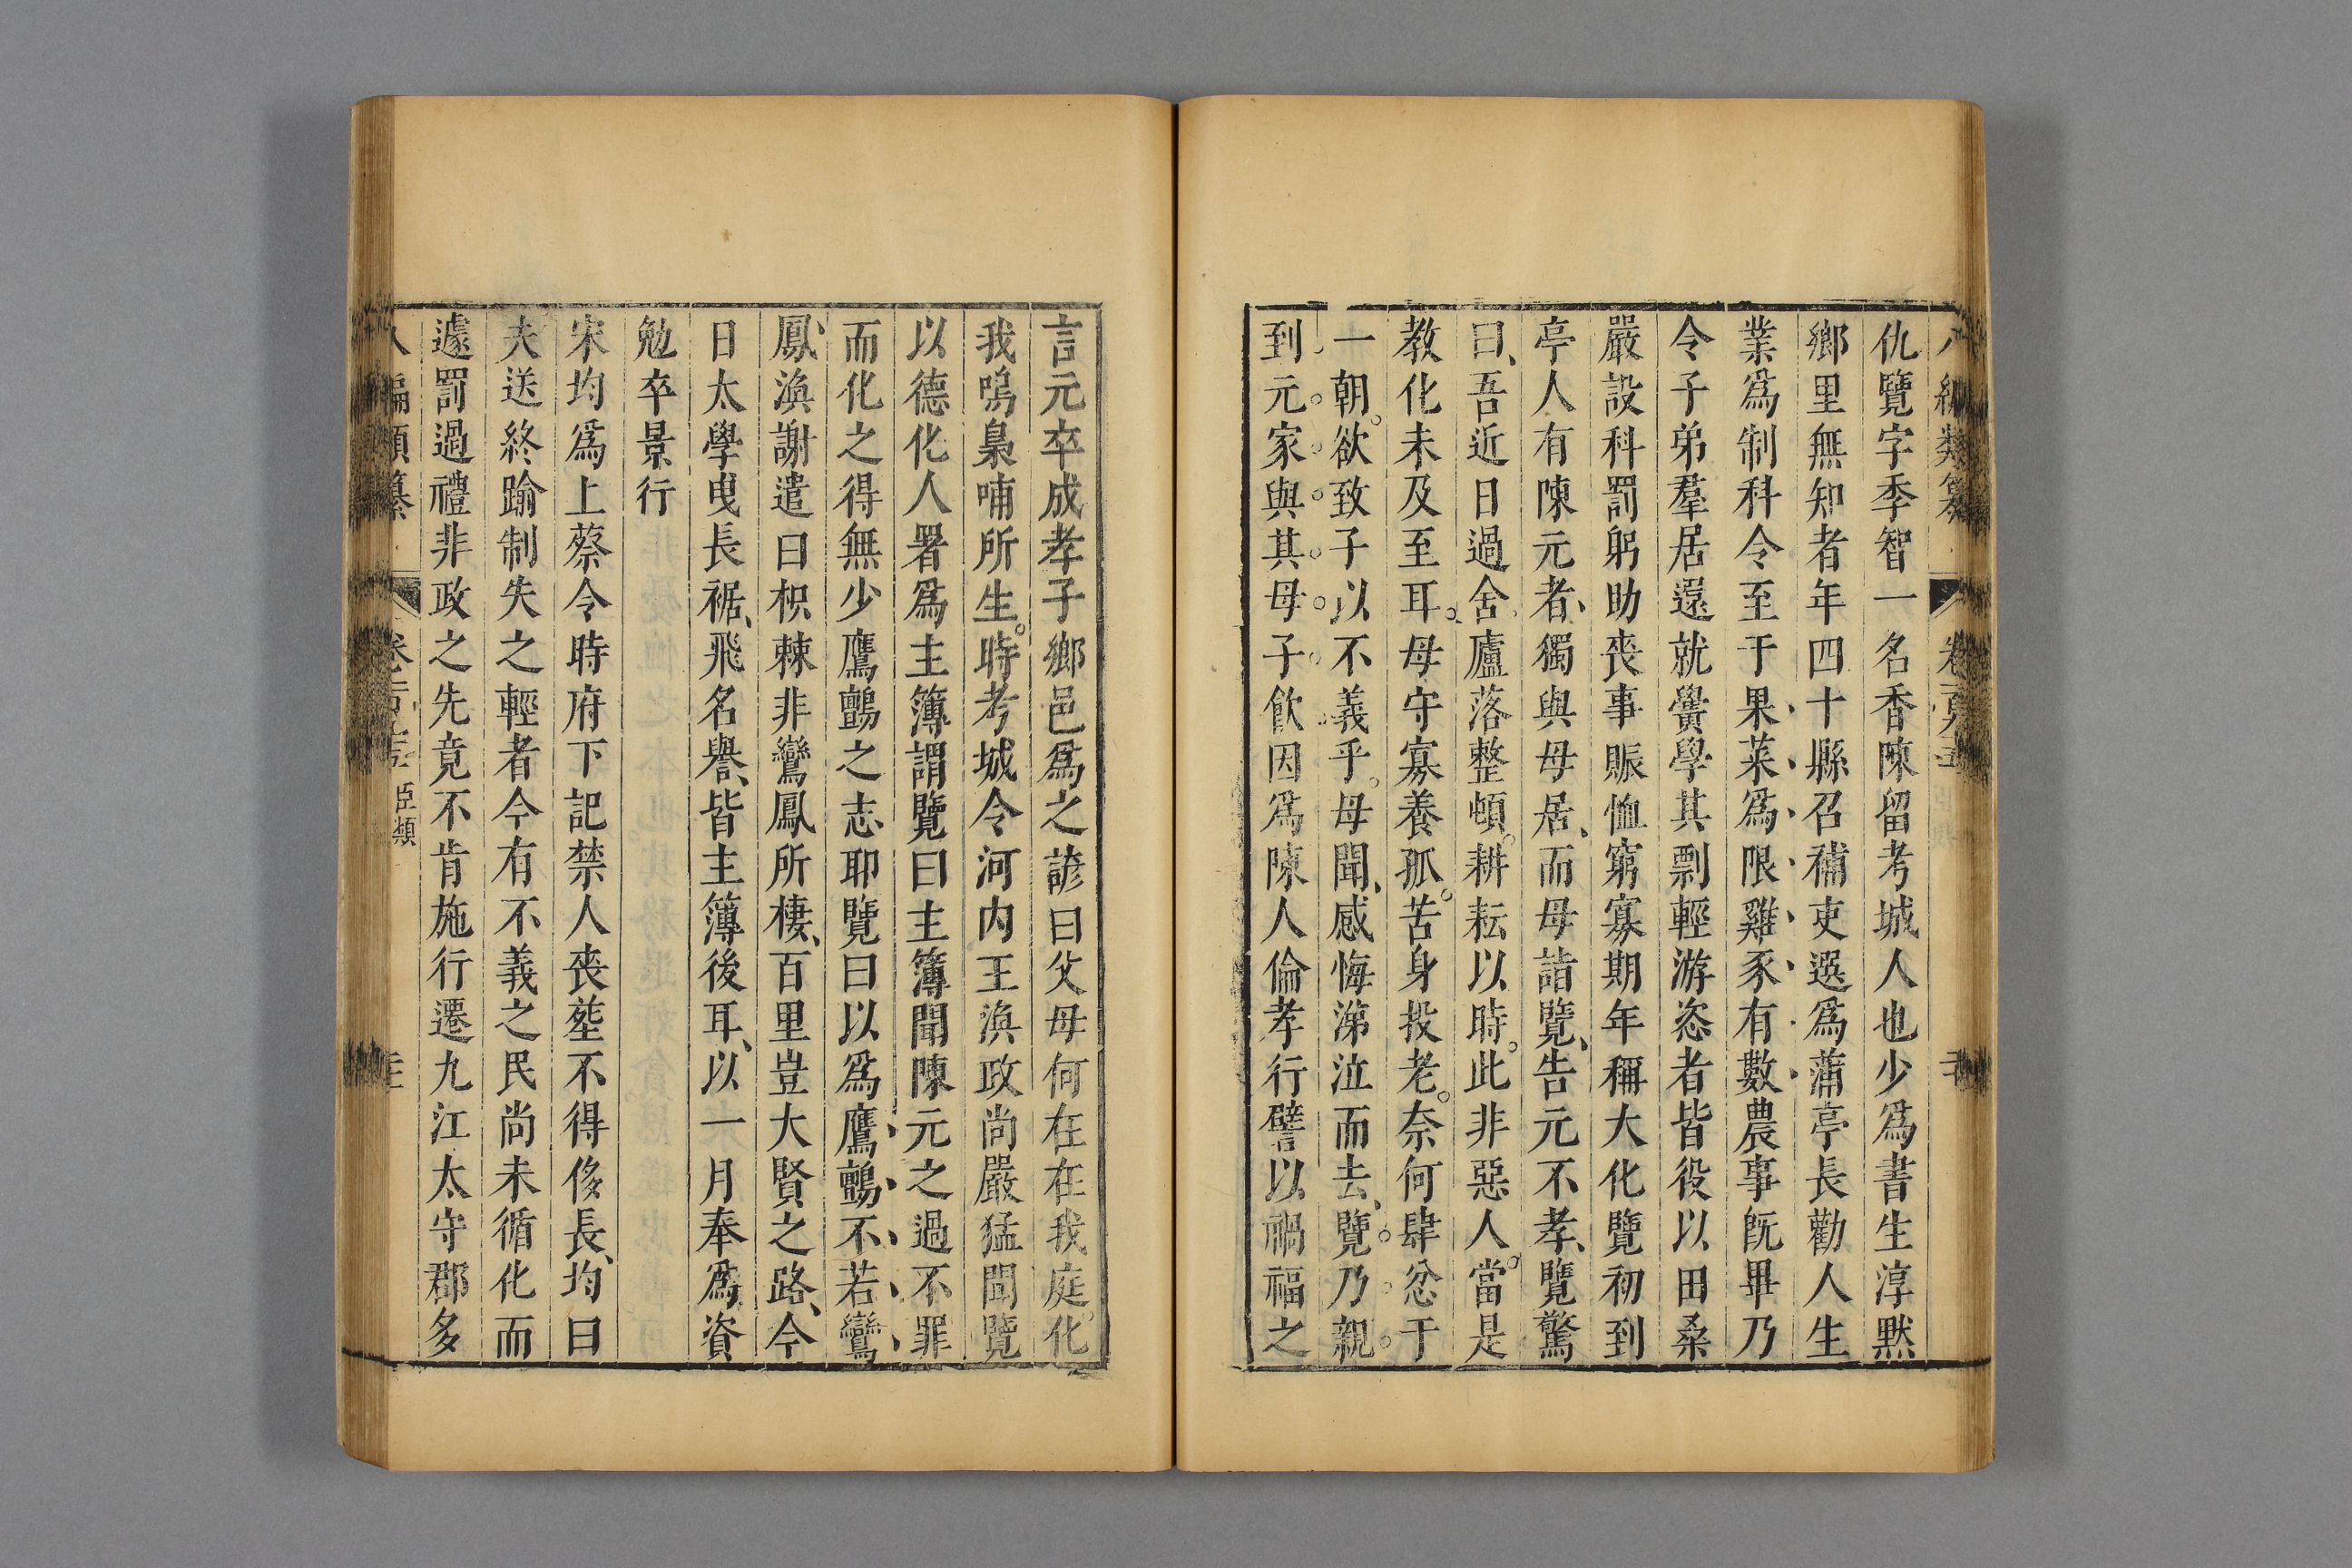 仇覽字季智一名香陳留考城人也少爲書生淳默
鄉里無知者年四十縣召補吏選爲蒲亭長勸人生
業爲制科令至于果、菜、爲、限、雞、豕、有數、農事旣畢乃
令子弟羣居還就黌學其剽輕游恣者皆役以田桑
嚴設科罰躬助喪事賑恤窮寡期年稱大化覽初到
亭人有陳元者、獨與母居、而母詣覽、告元不孝、覽驚
曰、吾近日過舍廬落整頓。耕耘以時。此非惡人。當是
教化未及至耳。母守寡養孤。苦身投老。奈何肆忿于
一朝。欲致子以不義乎。母聞、感悔涕泣而去、覽。乃。親。
到元。家。與。其。母。子。飮。因爲陳人倫孝行譬以禍福之
言元卒成孝子鄉邑爲之諺曰父母何在在我庭。化
我鳲梟哺所生。時考城令河內王渙政尚嚴猛聞覽
以德化人署爲主簿謂覽曰主簿聞陳元之過不罪
而化之得無少鷹鸇之志耶覽曰以爲鷹、鸇、不、若、鸞、
鳳、渙謝遣曰枳棘非鸞鳳所棲、百里豈大賢之路、今
日太學曳長裾、飛名譽、皆主簿後耳、以一月奉爲資
勉卒景行
宋均爲上蔡令時府下記禁人喪葬不得侈長、均曰
夫送終踰制失之輕者今有不義之民尚未循化而
遽罰過禮非政之先竟不肯施行遷九江太守郡多
八編類纂 臣類